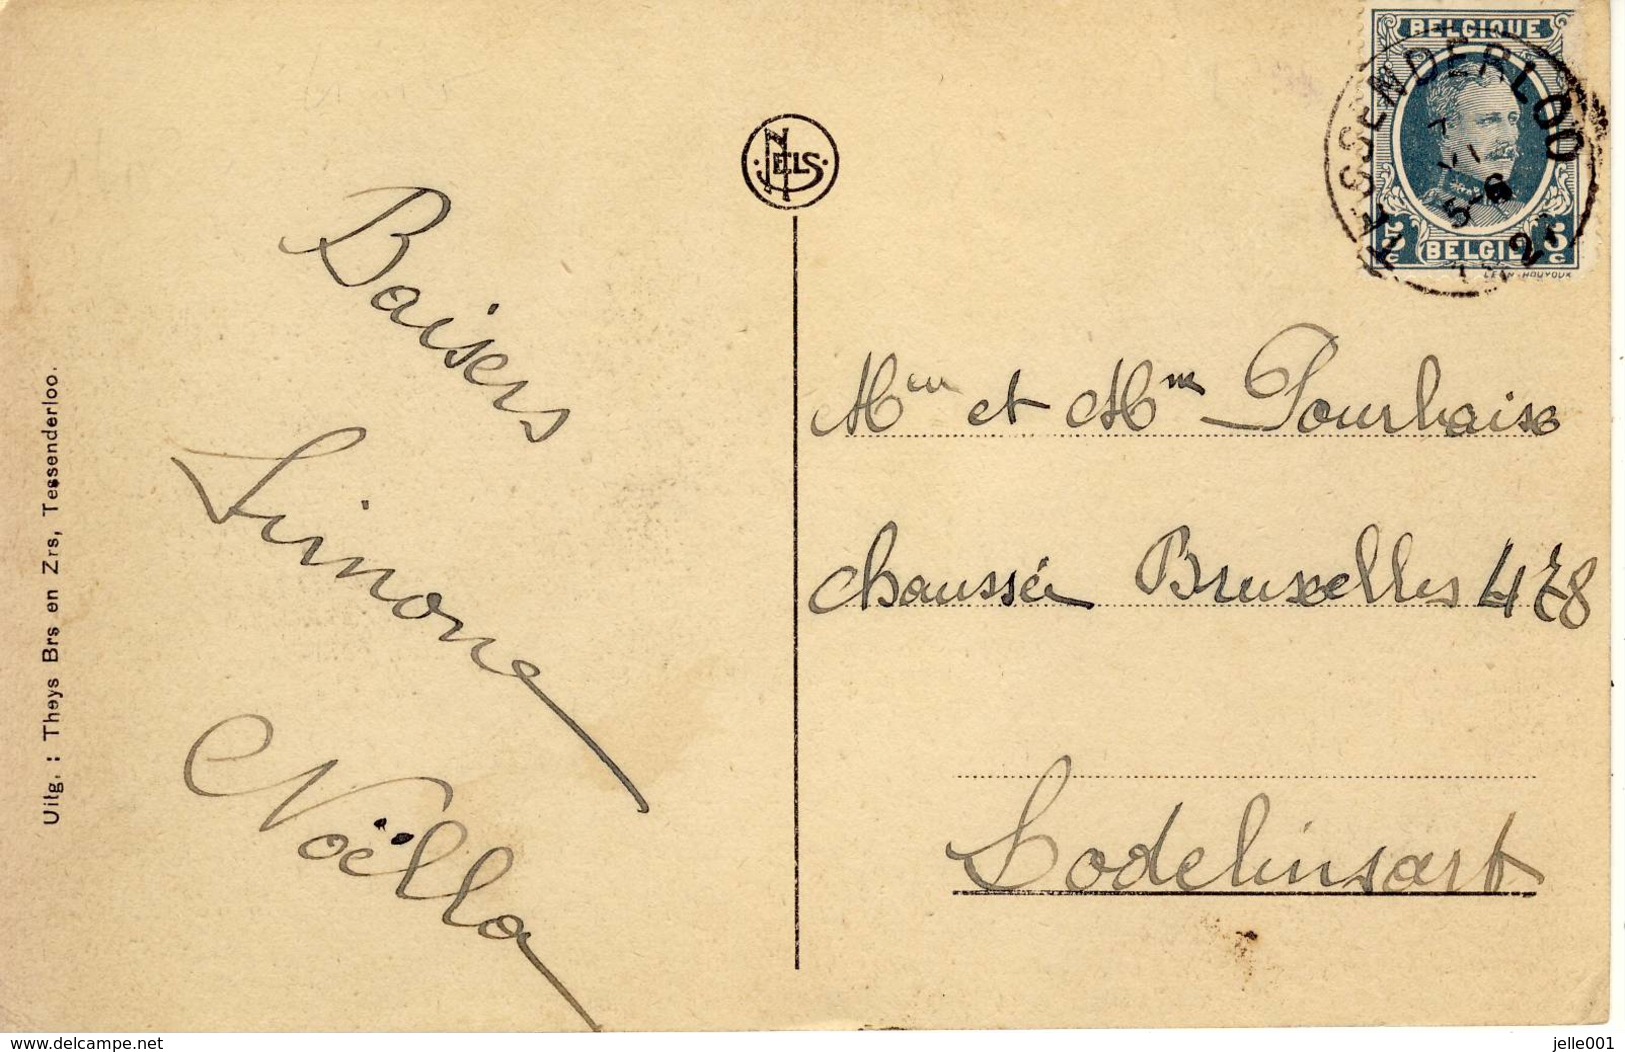 BELGIQUE
TESSENDERLOO
5-6
5c 5c
BELGIË
LEON-HOUYOUX
NELS
Baisers
Simone
Noëlla
Mr et Mme Pourbaix
Chaussée Bruxelles 478
Lodelinsart
Uitg. : Theys Brs en Zrs, Tessenderloo.
www.delcampe.net
jelle001